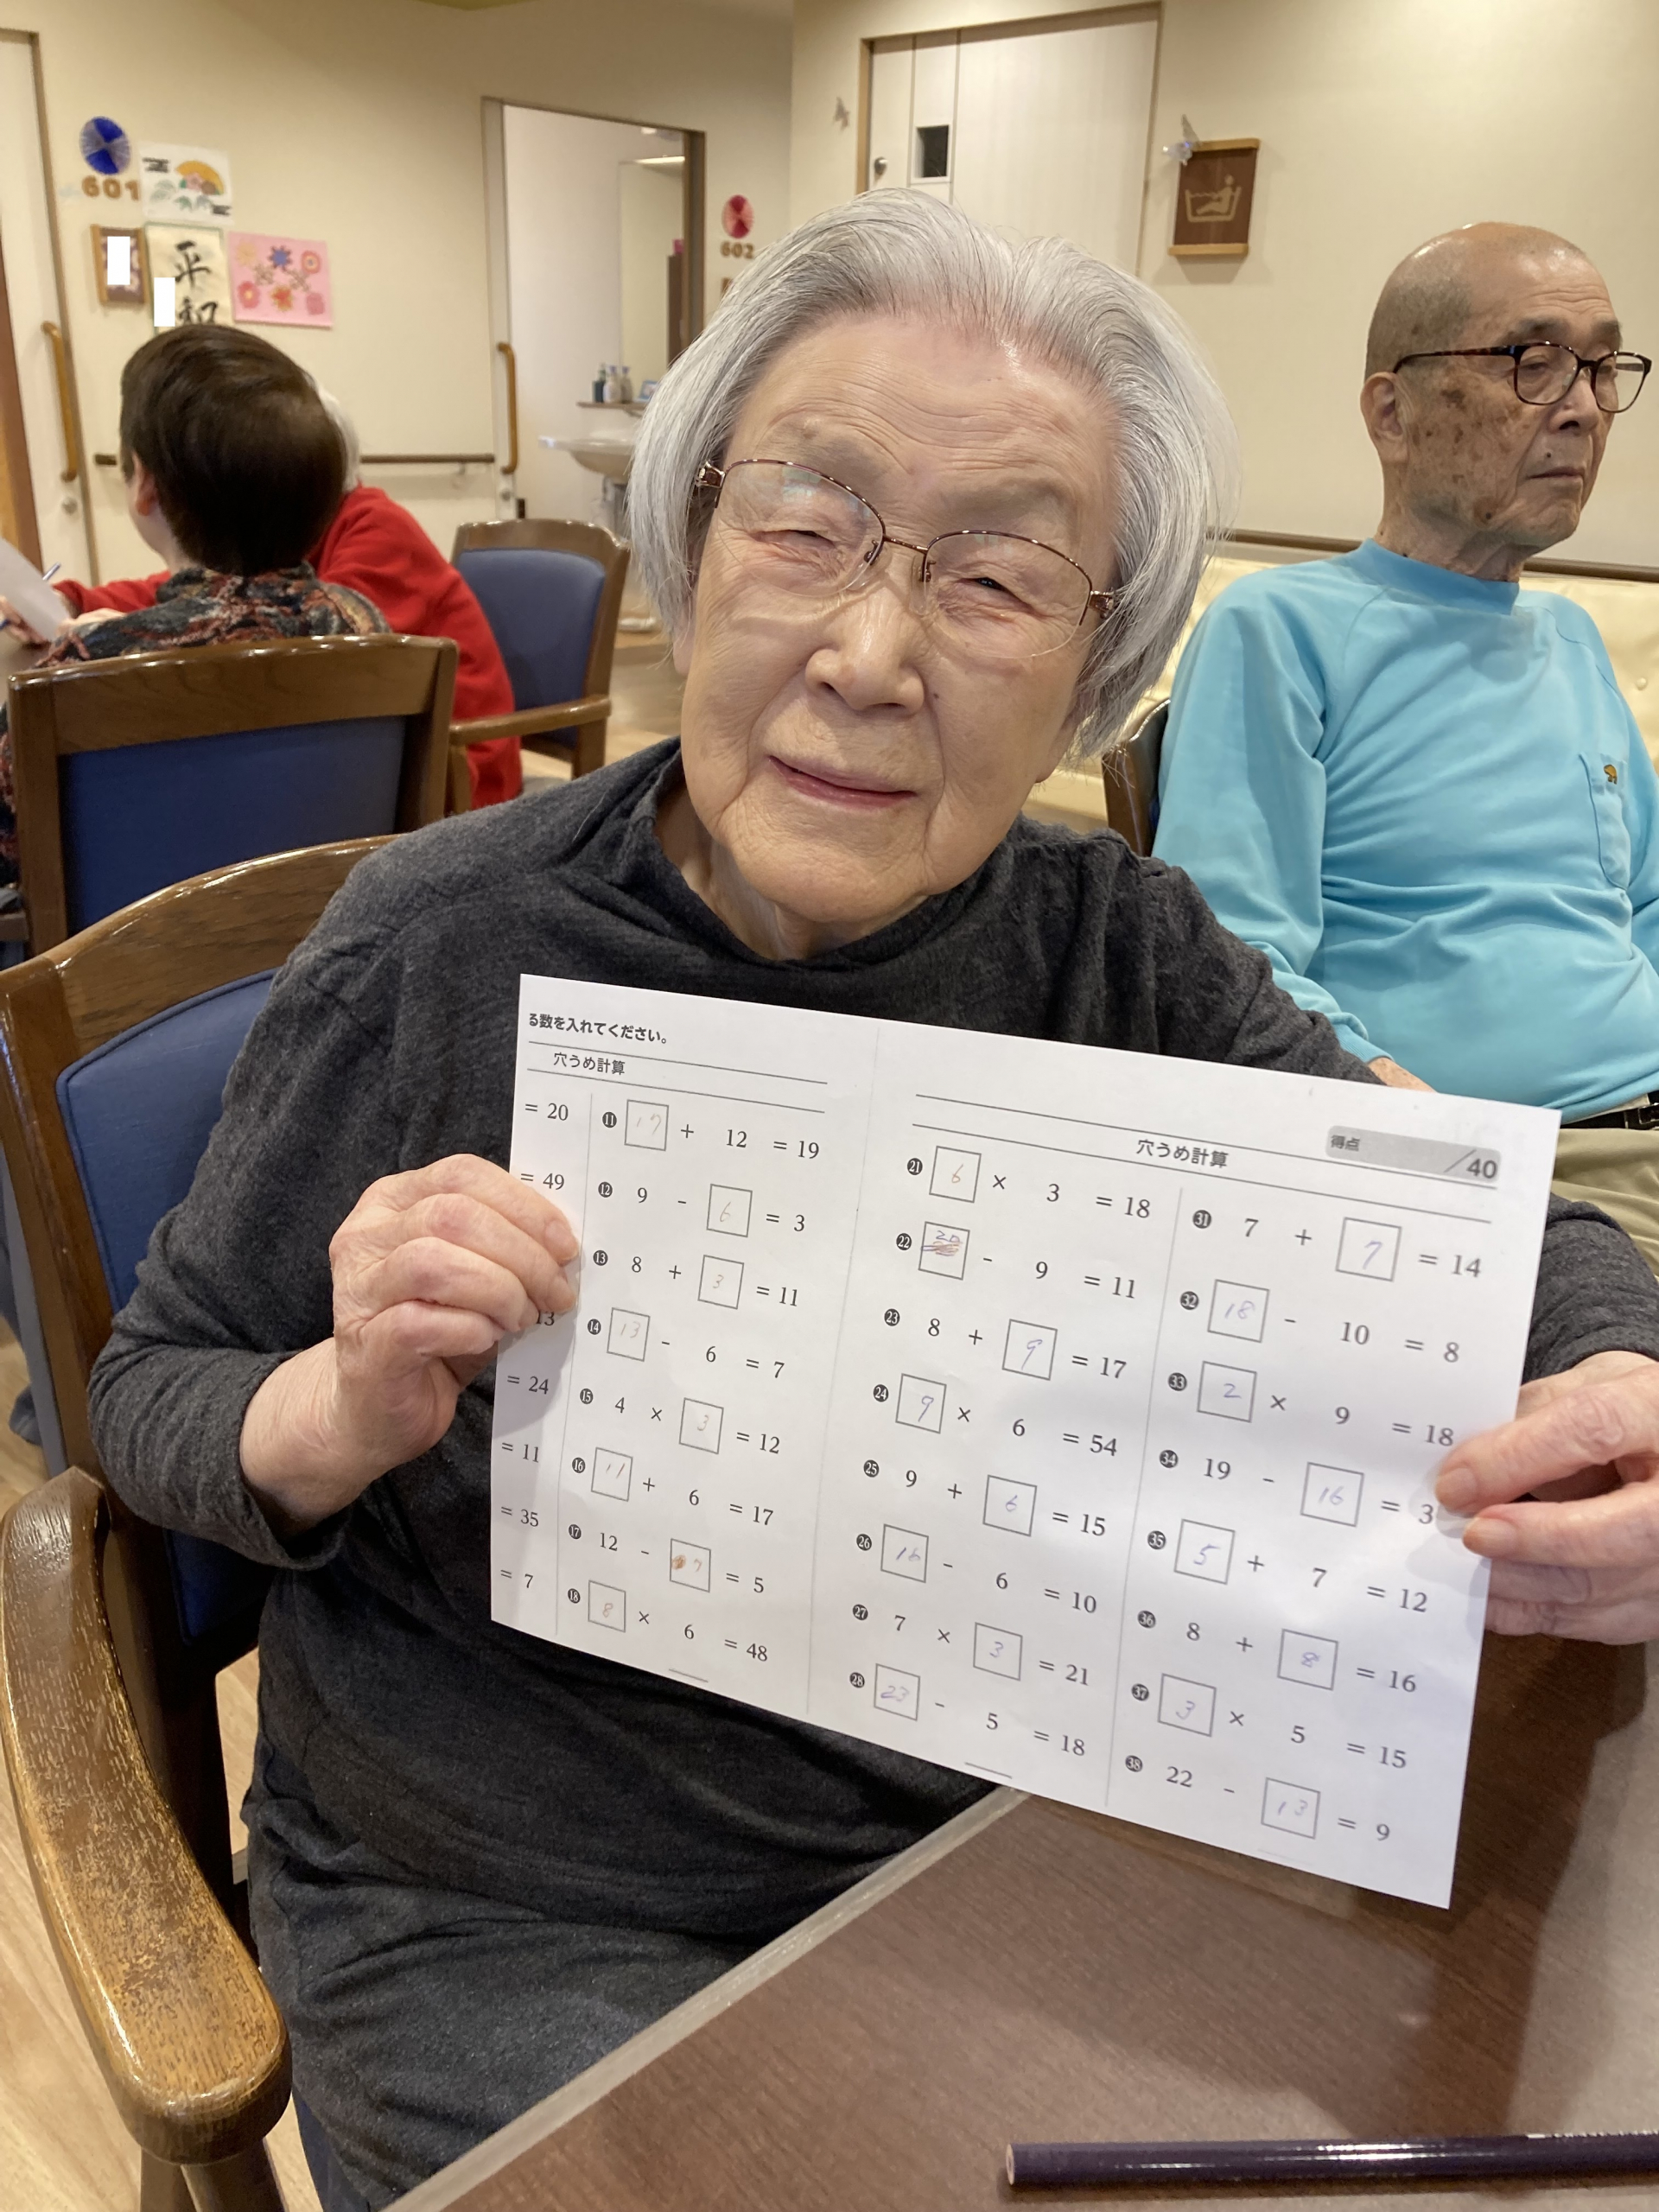 601
602
平
和
る数を入れてください。
穴うめ計算
= 20
= 49
13
= 24
= 11
= 35
= 7
⓫ 17 + 12 = 19
⓬ 9 - 6 = 3
⓭ 8 + 3 = 11
⓮ 13 - 6 = 7
⓯ 4 × 3 = 12
⓰ 11 + 6 = 17
⓱ 12 - 7 = 5
⓲ 8 × 6 = 48
穴うめ計算
得点 /40
㉑ 6 × 3 = 18
㉒ 20 - 9 = 11
㉓ 8 + 9 = 17
㉔ 9 × 6 = 54
㉕ 9 + 6 = 15
㉖ 16 - 6 = 10
㉗ 7 × 3 = 21
㉘ 23 - 5 = 18
㉛ 7 + 7 = 14
㉜ 18 - 10 = 8
㉝ 2 × 9 = 18
㉞ 19 - 16 = 3
㉟ 5 + 7 = 12
㊱ 8 + 8 = 16
㊲ 3 × 5 = 15
㊳ 22 - 13 = 9